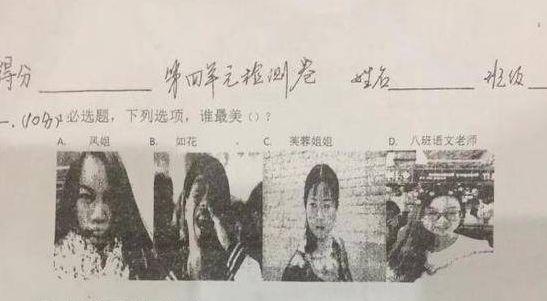 得分 第四单元检测卷 姓名 班级
一、(10分)必选题，下列选项，谁最美（）？
A. 凤姐 B. 如花 C. 芙蓉姐姐 D. 八班语文老师